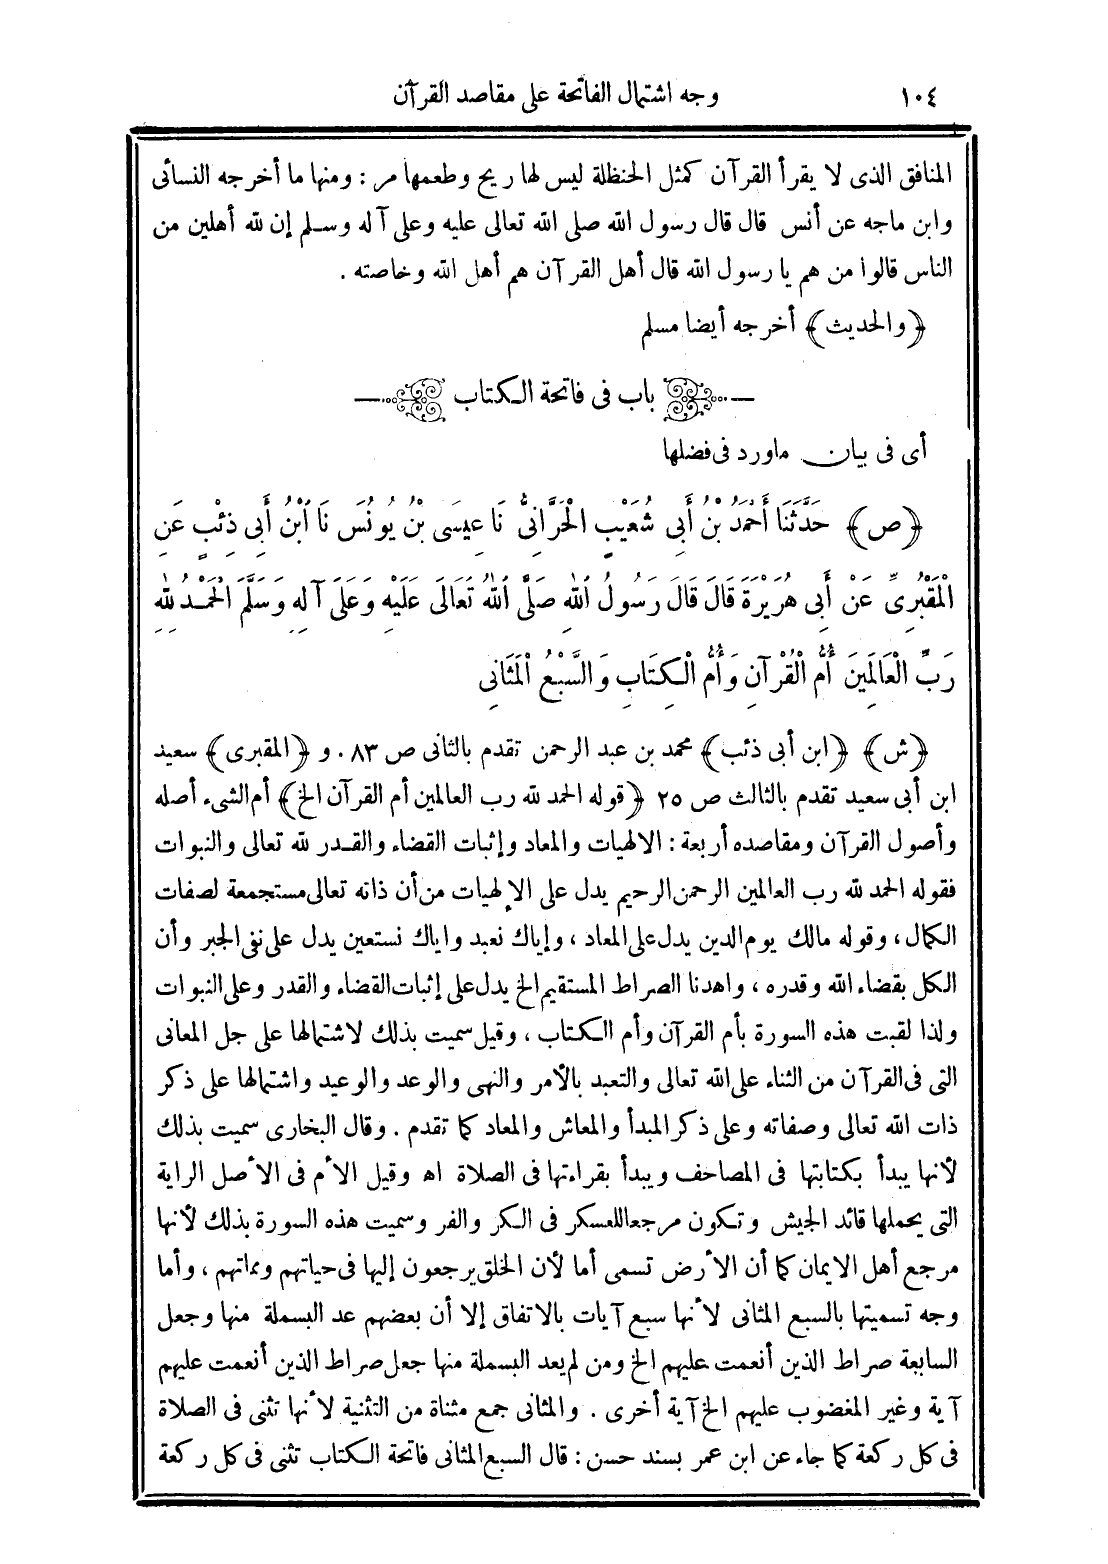 ١٠٤ وجه اشتمال الفاتحة على مقاصد القرآن
المنافق الذى لا يقرأ القرآن كمثل الحنظلة ليس لها ريح وطعمها مر : ومنها ما أخرجه النسائى
وابن ماجه عن أنس قال قال رسول الله صلى الله تعالى عليه وعلى آله وسلم إن لله أهلين من
الناس قالوا من هم يا رسول الله قال أهل القرآن هم أهل الله وخاصته .
﴿والحديث﴾ أخرجه أيضا مسلم
باب فى فاتحة الكتاب
أى فى بيان ماورد فى فضلها
﴿ص﴾ حَدَّثَنَا أَحْمَدُ بْنُ أَبِى شُعَيْبٍ الْحَرَّانِىُّ نَا عِيسَى بْنُ يُونُسَ نَا ابْنُ أَبِى ذِئْبٍ عَنِ
الْمَقْبُرِىِّ عَنْ أَبِى هُرَيْرَةَ قَالَ قَالَ رَسُولُ اللهِ صَلَّى اللهُ تَعَالَى عَلَيْهِ وَعَلَى آلِهِ وَسَلَّمَ الْحَمْدُ لِلهِ
رَبِّ الْعَالَمِينَ أُمُّ الْقُرْآنِ وَأُمُّ الْكِتَابِ وَالسَّبْعُ الْمَثَانِى
﴿ش﴾ ﴿ابن أبى ذئب﴾ محمد بن عبد الرحمن تقدم بالثانى ص ٨٣ . و ﴿المقبرى﴾ سعيد
ابن أبى سعيد تقدم بالثالث ص ٢٥ ﴿قوله الحمد لله رب العالمين أم القرآن الخ﴾ أم الشىء أصله
وأصول القرآن ومقاصده أربعة : الالهيات والمعاد وإثبات القضاء والقدر لله تعالى والنبوات
فقوله الحمد لله رب العالمين الرحمن الرحيم يدل على الإلهيات من أن ذاته تعالى مستجمعة لصفات
الكمال ، وقوله مالك يوم الدين يدل على المعاد ، وإياك نعبد واياك نستعين يدل على نفى الجبر وأن
الكل بقضاء الله وقدره ، واهدنا الصراط المستقيم الخ يدل على إثبات القضاء والقدر وعلى النبوات
ولذا لقبت هذه السورة بأم القرآن وأم الكتاب ، وقيل سميت بذلك لاشتمالها على جل المعانى
التى فى القرآن من الثناء على الله تعالى والتعبد بالأمر والنهى والوعد والوعيد واشتمالها على ذكر
ذات الله تعالى وصفاته وعلى ذكر المبدأ والمعاش والمعاد كما تقدم . وقال البخارى سميت بذلك
لأنها يبدأ بكتابتها فى المصاحف ويبدأ بقراءتها فى الصلاة اه وقيل الأم فى الأصل الراية
التى يحملها قائد الجيش وتكون مرجعا للعسكر فى الكر والفر وسميت هذه السورة بذلك لأنها
مرجع أهل الايمان كما أن الأرض تسمى أما لأن الخلق يرجعون إليها فى حياتهم ومماتهم ، وأما
وجه تسميتها بالسبع المثانى لأنها سبع آيات بالاتفاق إلا أن بعضهم عد البسملة منها وجعل
السابعة صراط الذين أنعمت عليهم الخ ومن لم يعد البسملة منها جعل صراط الذين أنعمت عليهم
آية وغير المغضوب عليهم الخ آية أخرى . والمثانى جمع مثناة من التثنية لأنها تثنى فى الصلاة
فى كل ركعة كما جاء عن ابن عمر بسند حسن : قال السبع المثانى فاتحة الكتاب تثنى فى كل ركعة